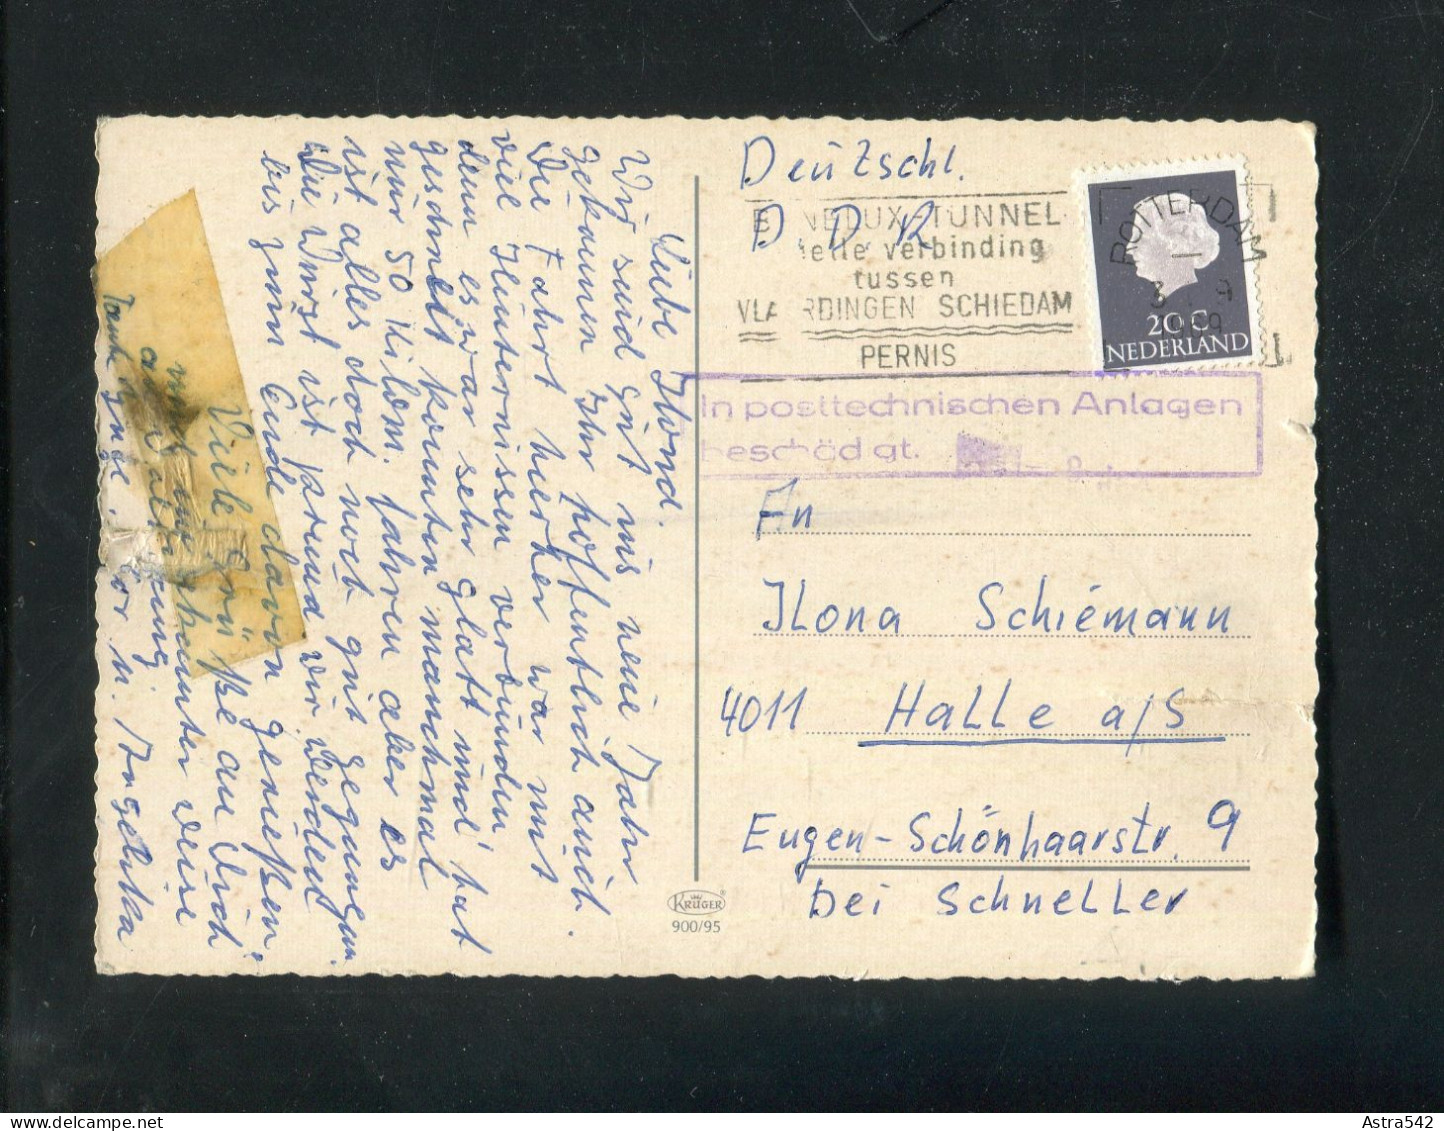 Liebe Ilona.
Wir sind gut ins neue Jahr
gekommen Ihr hoffentlich auch.
Die Fahrt hierher war mit
viel Hinternissen verbunden
denn es war sehr glatt und hat
geschneit konnten manchmal
nur 50 Kilom. fahren aber es
ist alles doch noch gut gegangen.
Die Wirst ist prima wir werden
bis zum Ende davon genießen.
Viele Grüße an Dich
Tante Inge u. Ingelika
Deutschl.
D. D. R
BENELUX TUNNEL
verbinding
tussen
VLAARDINGEN SCHIEDAM
PERNIS
ROTTERDAM
20 C
NEDERLAND
In posttechnischen Anlagen
beschädigt.
An
Ilona Schiemann
4011 Halle a/S
Eugen-Schönhaarstr. 9
bei Schneller
KRÜGER
900/95
Astra542